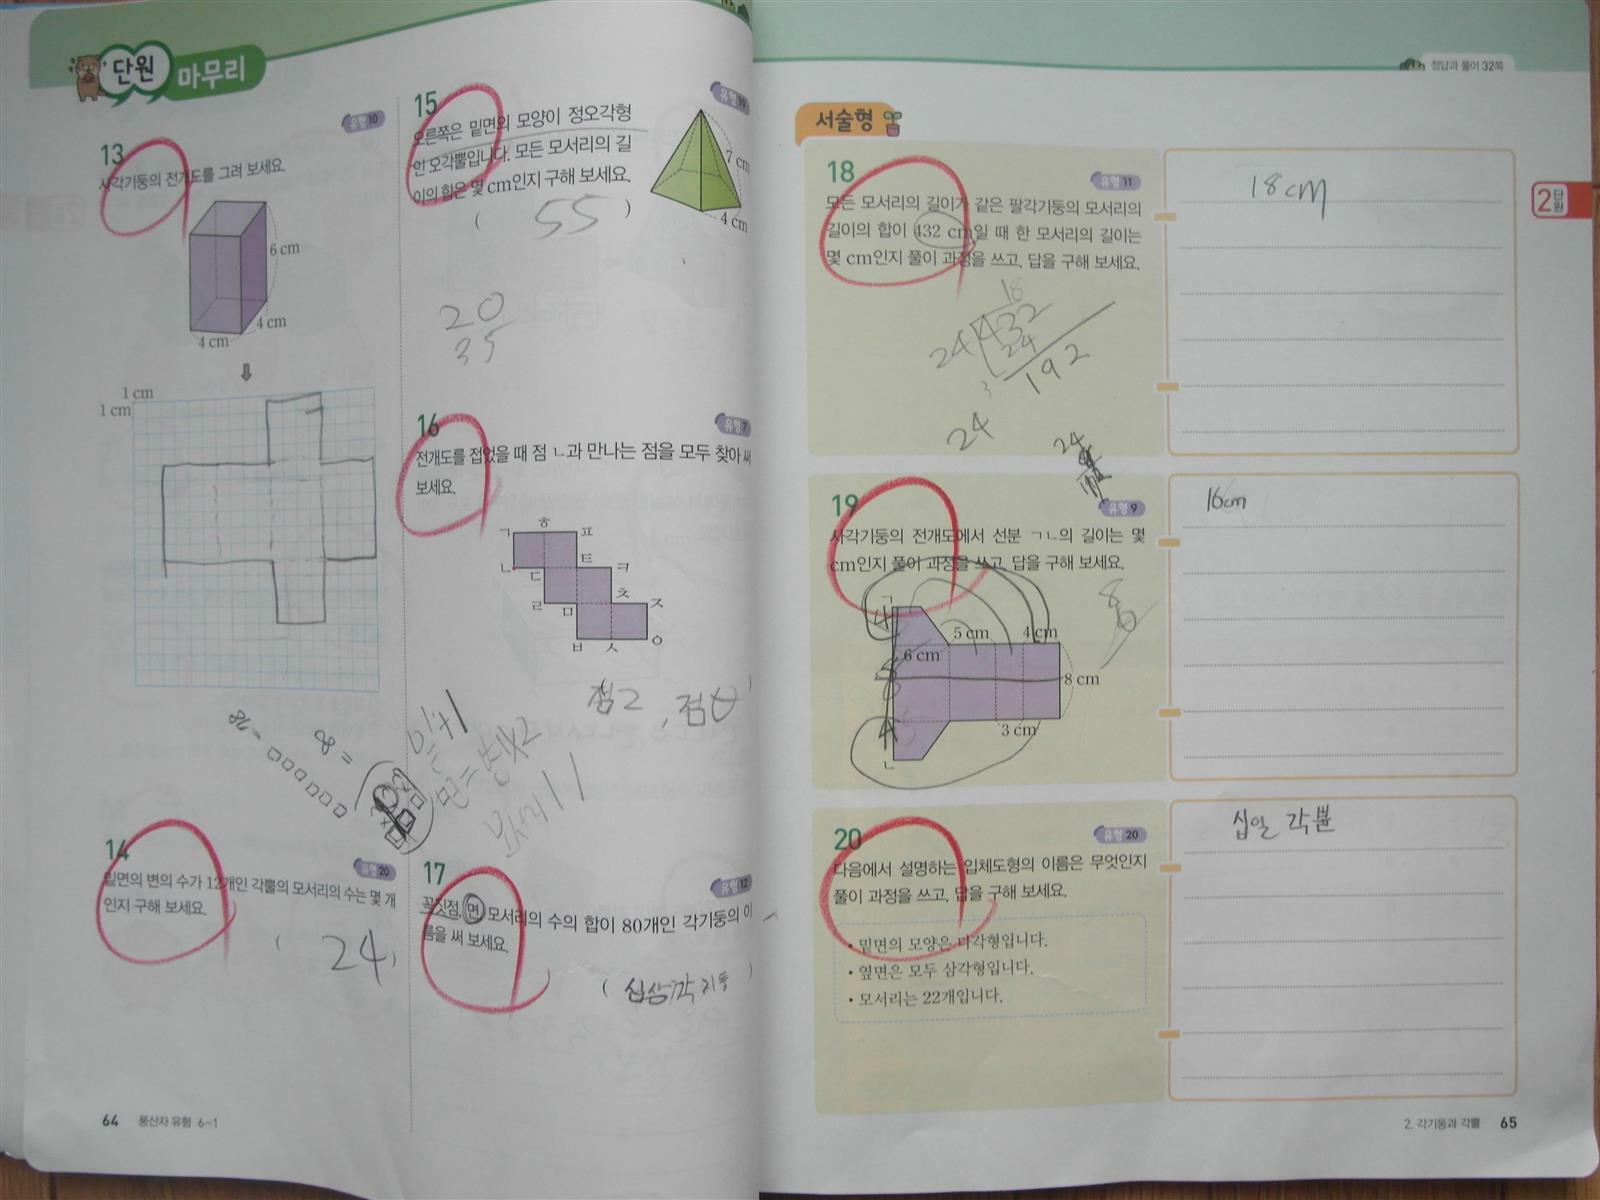 단원 마무리
유형 10
13
사각기둥의 전개도를 그려 보세요.
6 cm
4 cm
4 cm
1 cm
1 cm
14
유형 20
밑면의 변의 수가 12개인 각뿔의 모서리의 수는 몇 개
인지 구해 보세요.
( 24 )
64 풍산자 유형 6-1
유형 19
15
오른쪽은 밑면의 모양이 정오각형
인 오각뿔입니다. 모든 모서리의 길
이의 합은 몇 cm인지 구해 보세요.
( 55 )
7 cm
4 cm
20
35
16
유형 7
전개도를 접었을 때 점 ㄴ과 만나는 점을 모두 찾아 써
보세요.
ㄱ ㅎ ㅍ
ㅌ
ㄴ ㄷ ㅋ
ㅊ
ㄹ ㅁ ㅈ
ㅂ ㅅ ㅇ
17
유형 12
꼭짓점, 면, 모서리의 수의 합이 80개인 각기둥의 이
름을 써 보세요.
( 십삼각기둥 )
정답과 풀이 32쪽
서술형
2단원
18
유형 11
모든 모서리의 길이가 같은 팔각기둥의 모서리의
길이의 합이 432 cm일 때 한 모서리의 길이는
몇 cm인지 풀이 과정을 쓰고, 답을 구해 보세요.
18
24 432
24
192
24
18cm
19
유형 9
사각기둥의 전개도에서 선분 ㄱㄴ의 길이는 몇
cm인지 풀이 과정을 쓰고, 답을 구해 보세요.
ㄱ
5 cm 4 cm
6 cm
8 cm
3 cm
ㄴ
16cm
20
유형 20
다음에서 설명하는 입체도형의 이름은 무엇인지
풀이 과정을 쓰고, 답을 구해 보세요.
• 밑면의 모양은 다각형입니다.
• 옆면은 모두 삼각형입니다.
• 모서리는 22개입니다.
십일 각뿔
2. 각기둥과 각뿔 65